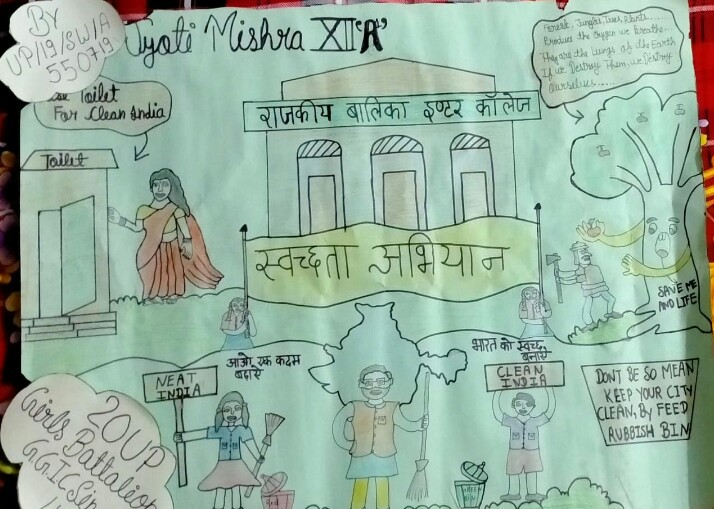 BY
UP/19/SW/A
550719
Jyoti Mishra XII 'A'
Forest, Jungles, Trees, Plants......
Produces the Oxygen we Breathe.
They are the lungs of the Earth
If we Destroy Them, we Destroy
Ourselves......
Use Toilet
For Clean India
Toilet
राजकीय बालिका इण्टर कॉलेज
स्वच्छता अभियान
SAVE ME
AND LIFE
आओ एक कदम
बढ़ाऐ
भारत को स्वच्छ
बनाऐ
NEAT
INDIA
CLEAN
INDIA
DONT BE SO MEAN
KEEP YOUR CITY
CLEAN, BY FEED
RUBBISH BIN
20 UP
Girls Battalion